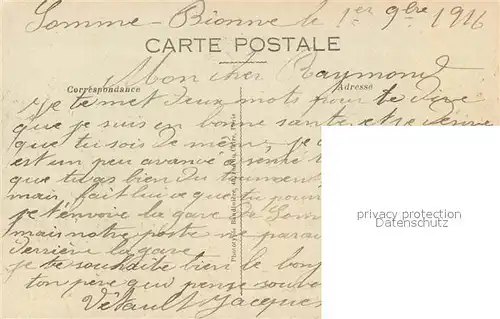 Somme-Bionne le 1er 9bre 1916
CARTE POSTALE
Mon cher Raymond
Correspondance
Adresse
Je te met deux mots pour te dire
que je suis en bonne santé et je désire
que tu sois de même, je
est un peu avancé
que tu as bien du tourment
mais fait lui ce que tu pourr
je t'envoie la gare de Somm
mais notre poste ne parai
derrière la gare
je te souhaite bien le bonj
ton père qui pense souve
Jacques
privacy protection
Datenschutz